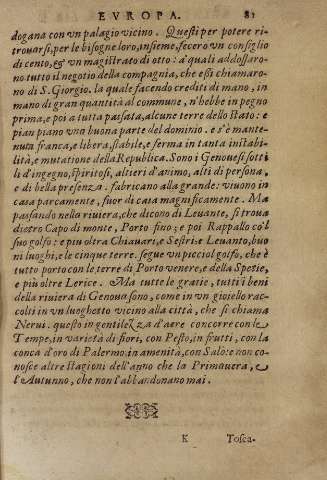 EVROPA. 81
dogana con vn palagio vicino. Questi per potere ri-
trouarsi, per le bisogne loro, insieme, fecero vn consiglio
di cento, & vn magistrato di otto: a' quali addossaro-
no tutto il negotio della compagnia, che essi chiamaro-
no di S. Giorgio. la quale facendo crediti di mano, in
mano di gran quantità al commune, n'hebbe in pegno
prima, e poi a tutta passata, alcune terre dello stato: e
pian piano vna buona parte del dominio. e s'è mante-
nuta franca, e libera, stabile, e ferma in tanta instabi-
lità, e mutatione della Republica. Sono i Genouesi sotti
li d'ingegno, spiritosi, altieri d'animo, alti di persona,
e di bella presenza. fabricano alla grande: viuono in
casa parcamente, fuor di casa magnificamente. Ma
passando nella riuiera, che dicono di Leuante, si troua
dietro Capo di monte, Porto fino; e poi Rappallo co'l
suo golfo: e piu oltra Chiauari, e Sestri a Leuanto, buo
ni luoghi, e le cinque terre. segue vn picciol golfo, che è
tutto porto con le terre di Porto venere, e della Spezie,
e piu oltre Lerice. Ma tutte le gratie, tutti i beni
della riuiera di Genoua sono, come in vn gioiello racc
olti in vn luoghetto vicino alla città, che si chiama
Nerui. questo in gentilezza d'aere concorre con le
Tempe, in varietà di fiori, con Pesto, in frutti, con la
conca d'oro di Palermo, in amenità, con Salo: e non co-
nosce altre stagioni dell'anno che la Primauera, e
l'Autunno, che non l'abbandonano mai.
K Tosca-